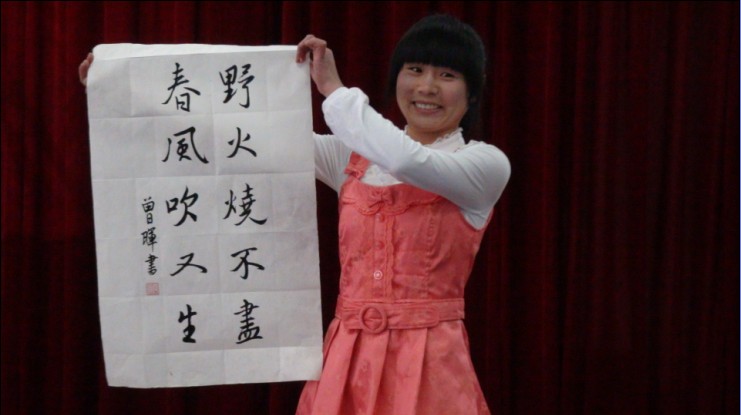 野火燒不盡
春風吹又生
曾暉書